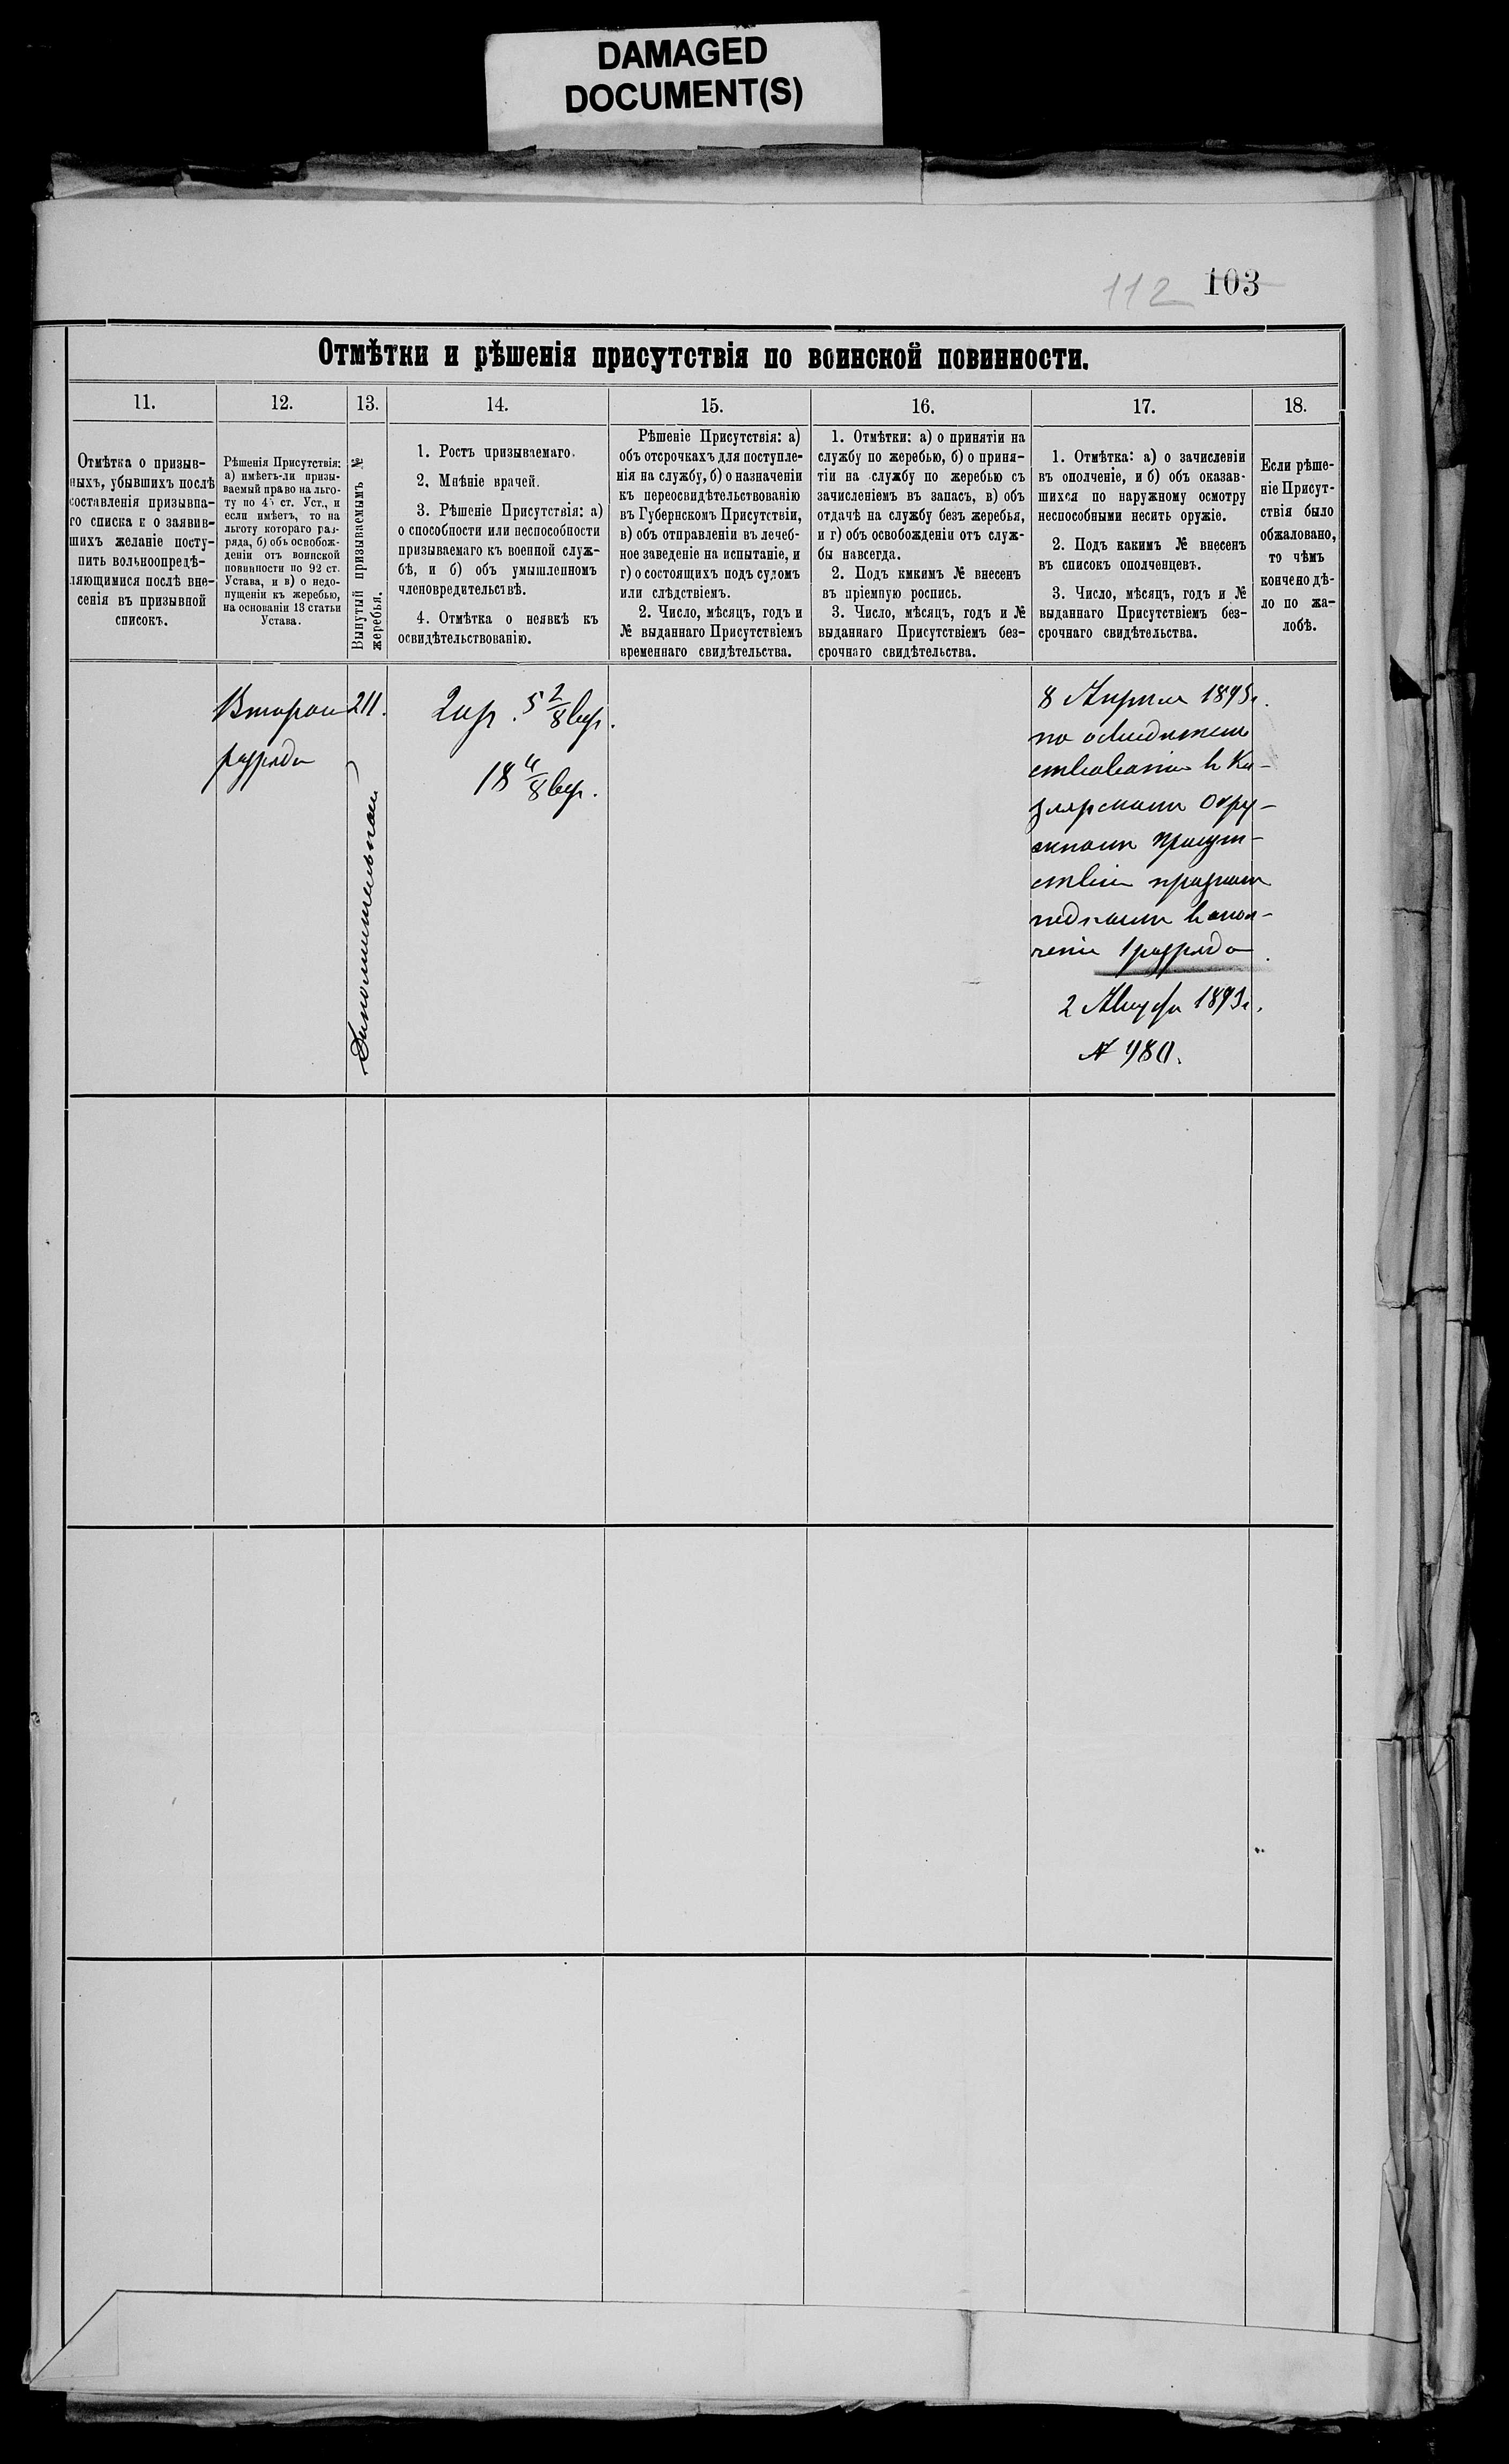 DAMAGED
DOCUMENT(S)
112 103
Отмѣтки и рѣшенія присутствія по воинской повинности.
11.
Отмѣтка о призыв-
ныхъ, убывшихъ послѣ
составленія призывна-
го списка и о заявив-
шихъ желаніе посту-
пить вольноопредѣ-
ляющимися послѣ вне-
сенія въ призывной
списокъ.
12.
Рѣшенія Присутствія:
а) имѣетъ-ли призы-
ваемый право на льго-
ту по 45 ст. Уст., и
если имѣетъ, то на
льготу котораго раз-
ряда, б) объ освобож-
деніи отъ воинской
повинности по 92 ст.
Устава, и в) о недо-
пущеніи къ жеребью,
на основаніи 13 статьи
Устава.
13.
Вынутый призываемымъ №
жеребья.
14.
1. Ростъ призываемаго.
2. Мнѣніе врачей.
3. Рѣшеніе Присутствія: а)
о способности или неспособности
призываемаго къ военной служ-
бѣ, и б) объ умышленномъ
членовредительствѣ.
4. Отмѣтка о неявкѣ къ
освидѣтельствованію.
15.
Рѣшеніе Присутствія: а)
объ отсрочкахъ для поступле-
нія на службу, б) о назначеніи
къ переосвидѣтельствованію
въ Губернскомъ Присутствіи,
в) объ отправленіи въ лечеб-
ное заведеніе на испытаніе, и
г) о состоящихъ подъ судомъ
или слѣдствіемъ.
2. Число, мѣсяцъ, годъ и
№ выданнаго Присутствіемъ
временнаго свидѣтельства.
16.
1. Отмѣтки: а) о принятіи на
службу по жеребью, б) о приня-
тіи на службу по жеребью съ
зачисленіемъ въ запасъ, в) объ
отдачѣ на службу безъ жеребья,
и г) объ освобожденіи отъ служ-
бы навсегда.
2. Подъ кмкимъ № внесенъ
въ пріемную роспись.
3. Число, мѣсяцъ, годъ и №
выданнаго Присутствіемъ без-
срочнаго свидѣтельства.
17.
1. Отмѣтка: а) о зачисленіи
въ ополченіе, и б) объ оказав-
шихся по наружному осмотру
неспособными несить оружіе.
2. Подъ какимъ № внесенъ
въ списокъ ополченцевъ.
3. Число, мѣсяцъ, годъ и №
выданнаго Присутствіемъ без-
срочнаго свидѣтельства.
18.
Если рѣше-
ніе Присут-
ствія было
обжаловано,
то чѣмъ
кончено дѣ-
ло по жа-
лобѣ.
Второй
разряда
211.
Дополнительной
2 ар. 5 2/8 вер.
18 4/8 вер.
8 Апреля 1893 г.
по освидетель
ствованіи в Ки-
злярском Окру-
жном Присут-
ствіи признан
годным в опол-
ченіе 1 разряда.
2 Августа 1893 г.
№ 980.